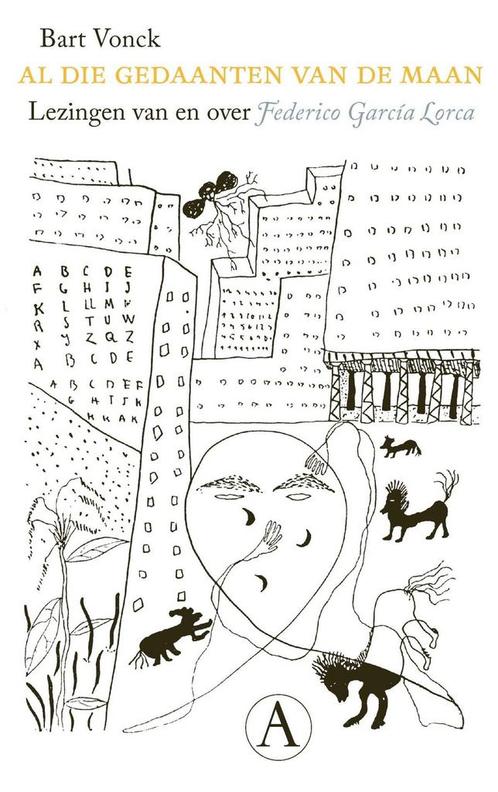 Bart Vonck
AL DIE GEDAANTEN VAN DE MAAN
Lezingen van en over Federico García Lorca
A B C D E
F G H I J
K L LL M N
R S T U W
X Y Z Q Z
A B C D E
A B C D E F
G H I J K
H K A K
A